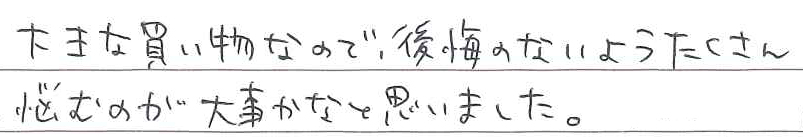 大きな買い物なので、後悔のないようたくさん
悩むのが大事かなと思いました。